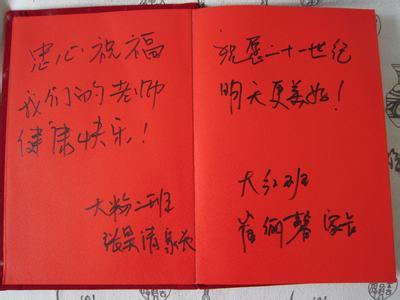 忠心祝福
我们的老师
健康快乐！
大粉二班
张昊清家长
祝愿二十一世纪
明天更美好！
大红班
馨家长